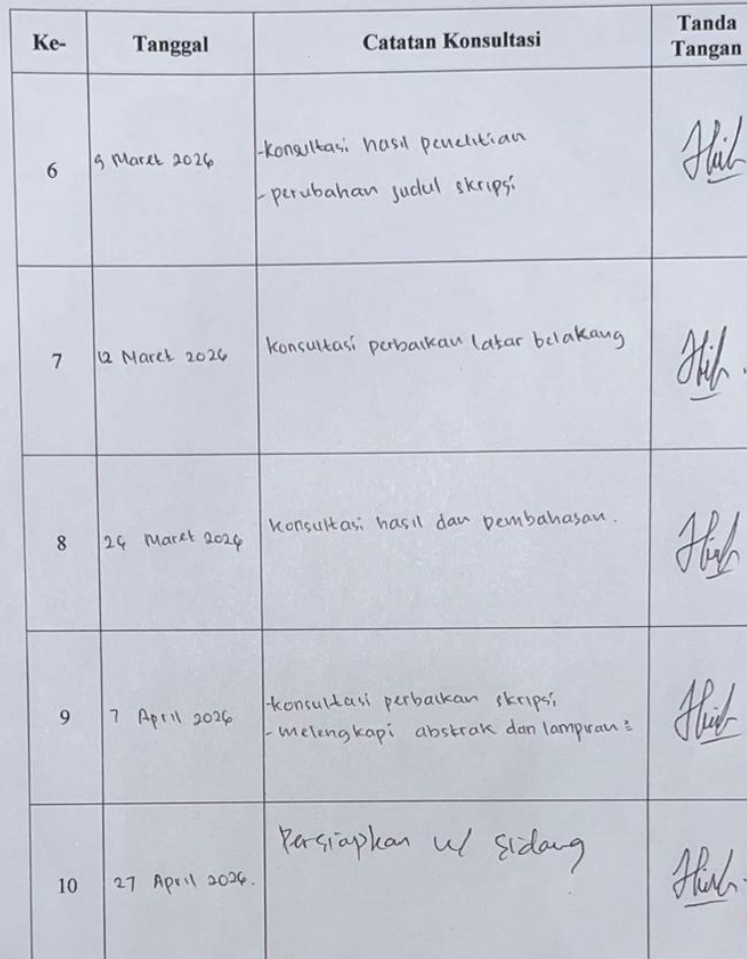 Ke-
Tanggal
Catatan Konsultasi
Tanda
Tangan
6
9 Maret 2026
-konsultasi hasil penelitian
- perubahan judul skripsi
7
12 Maret 2026
konsultasi perbaikan latar belakang
8
26 Maret 2026
konsultasi hasil dan pembahasan.
9
7 April 2026
-konsultasi perbaikan skripsi
- melengkapi abstrak dan lampiran²
10
27 April 2026.
Persiapkan u/ sidang